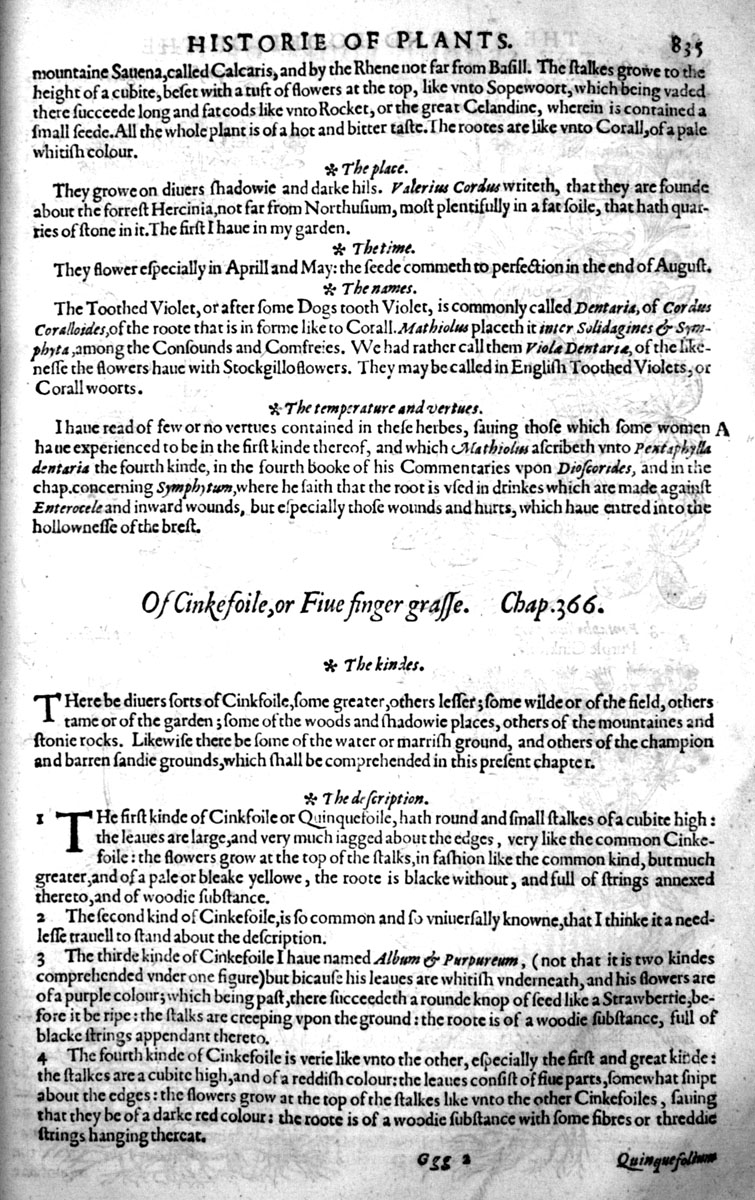 HISTORIE OF PLANTS. 835
mountaine Sauena,called Calcaris, and by the Rhene not far from Basill. The ſtalkes growe to the
height of a cubite, beſet with a tuft of flowers at the top, like vnto Sopewoort, which being vaded
there ſucceede long and fat cods like vnto Rocket, or the great Celandine, wherein is contained a
ſmall ſeede. All the whole plant is of a hot and bitter taſte. The rootes are like vnto Corall, of a pale
whitiſh colour.
✻ The place.
They growe on diuers ſhadowie and darke hils. Valerius Cordus writeth, that they are founde
about the forreſt Hercinia, not far from Northuſium, moſt plentifully in a fat ſoile, that hath quar-
ries of ſtone in it. The firſt I haue in my garden.
✻ The time.
They flower eſpecially in Aprill and May: the ſeede commeth to perfection in the end of Auguſt.
✻ The names.
The Toothed Violet, or after ſome Dogs tooth Violet, is commonly called Dentaria, of Cordus
Coralloides, of the roote that is in forme like to Corall. Mathiolus placeth it inter Solidagines & Sym-
phyta, among the Conſounds and Comfreies. We had rather call them Viola Dentaria, of the like-
neſſe the flowers haue with Stockgilloflowers. They may be called in Engliſh Toothed Violets, or
Corall woorts.
✻ The temperature and vertues.
I haue read of few or no vertues contained in theſe herbes, ſauing thoſe which ſome women A
haue experienced to be in the firſt kinde thereof, and which Mathiolus aſcribeth vnto Pentaphylla
dentaria the fourth kinde, in the fourth booke of his Commentaries vpon Dioſcorides, and in the
chap. concerning Symphytum, where he ſaith that the root is vſed in drinkes which are made againſt
Enterocele and inward wounds, but eſpecially thoſe wounds and hurts, which haue entred into the
hollowneſſe of the breſt.
Of Cinkefoile, or Fiue finger graſſe. Chap. 366.
✻ The kindes.
THere be diuers ſorts of Cinkfoile, ſome greater, others leſſer; ſome wilde or of the field, others
tame or of the garden; ſome of the woods and ſhadowie places, others of the mountaines and
ſtonie rocks. Likewiſe there be ſome of the water or marriſh ground, and others of the champion
and barren ſandie grounds, which ſhall be comprehended in this preſent chapter.
✻ The deſcription.
1 THe firſt kinde of Cinkfoile or Quinquefoile, hath round and ſmall ſtalkes of a cubite high:
the leaues are large, and very much iagged about the edges, very like the common Cinke-
foile: the flowers grow at the top of the ſtalks, in faſhion like the common kind, but much
greater, and of a pale or bleake yellowe, the roote is blacke without, and full of ſtrings annexed
thereto, and of woodie ſubſtance.
2 The ſecond kind of Cinkefoile, is ſo common and ſo vniuerſally knowne, that I thinke it a need-
leſſe trauell to ſtand about the deſcription.
3 The thirde kinde of Cinkefoile I haue named Album & Purpureum, (not that it is two kindes
comprehended vnder one figure) but bicauſe his leaues are whitiſh vnderneath, and his flowers are
of a purple colour; which being paſt, there ſucceedeth a rounde knop of ſeed like a Strawberrie, be-
fore it be ripe: the ſtalks are creeping vpon the ground: the roote is of a woodie ſubſtance, full of
blacke ſtrings appendant thereto.
4 The fourth kinde of Cinkefoile is verie like vnto the other, eſpecially the firſt and great kinde:
the ſtalkes are a cubite high, and of a reddiſh colour: the leaues conſiſt of fiue parts, ſomewhat ſnipt
about the edges: the flowers grow at the top of the ſtalkes like vnto the other Cinkefoiles, ſauing
that they be of a darke red colour: the roote is of a woodie ſubſtance with ſome fibres or threddie
ſtrings hanging thereat.
Ggg 2 Quinquefolium